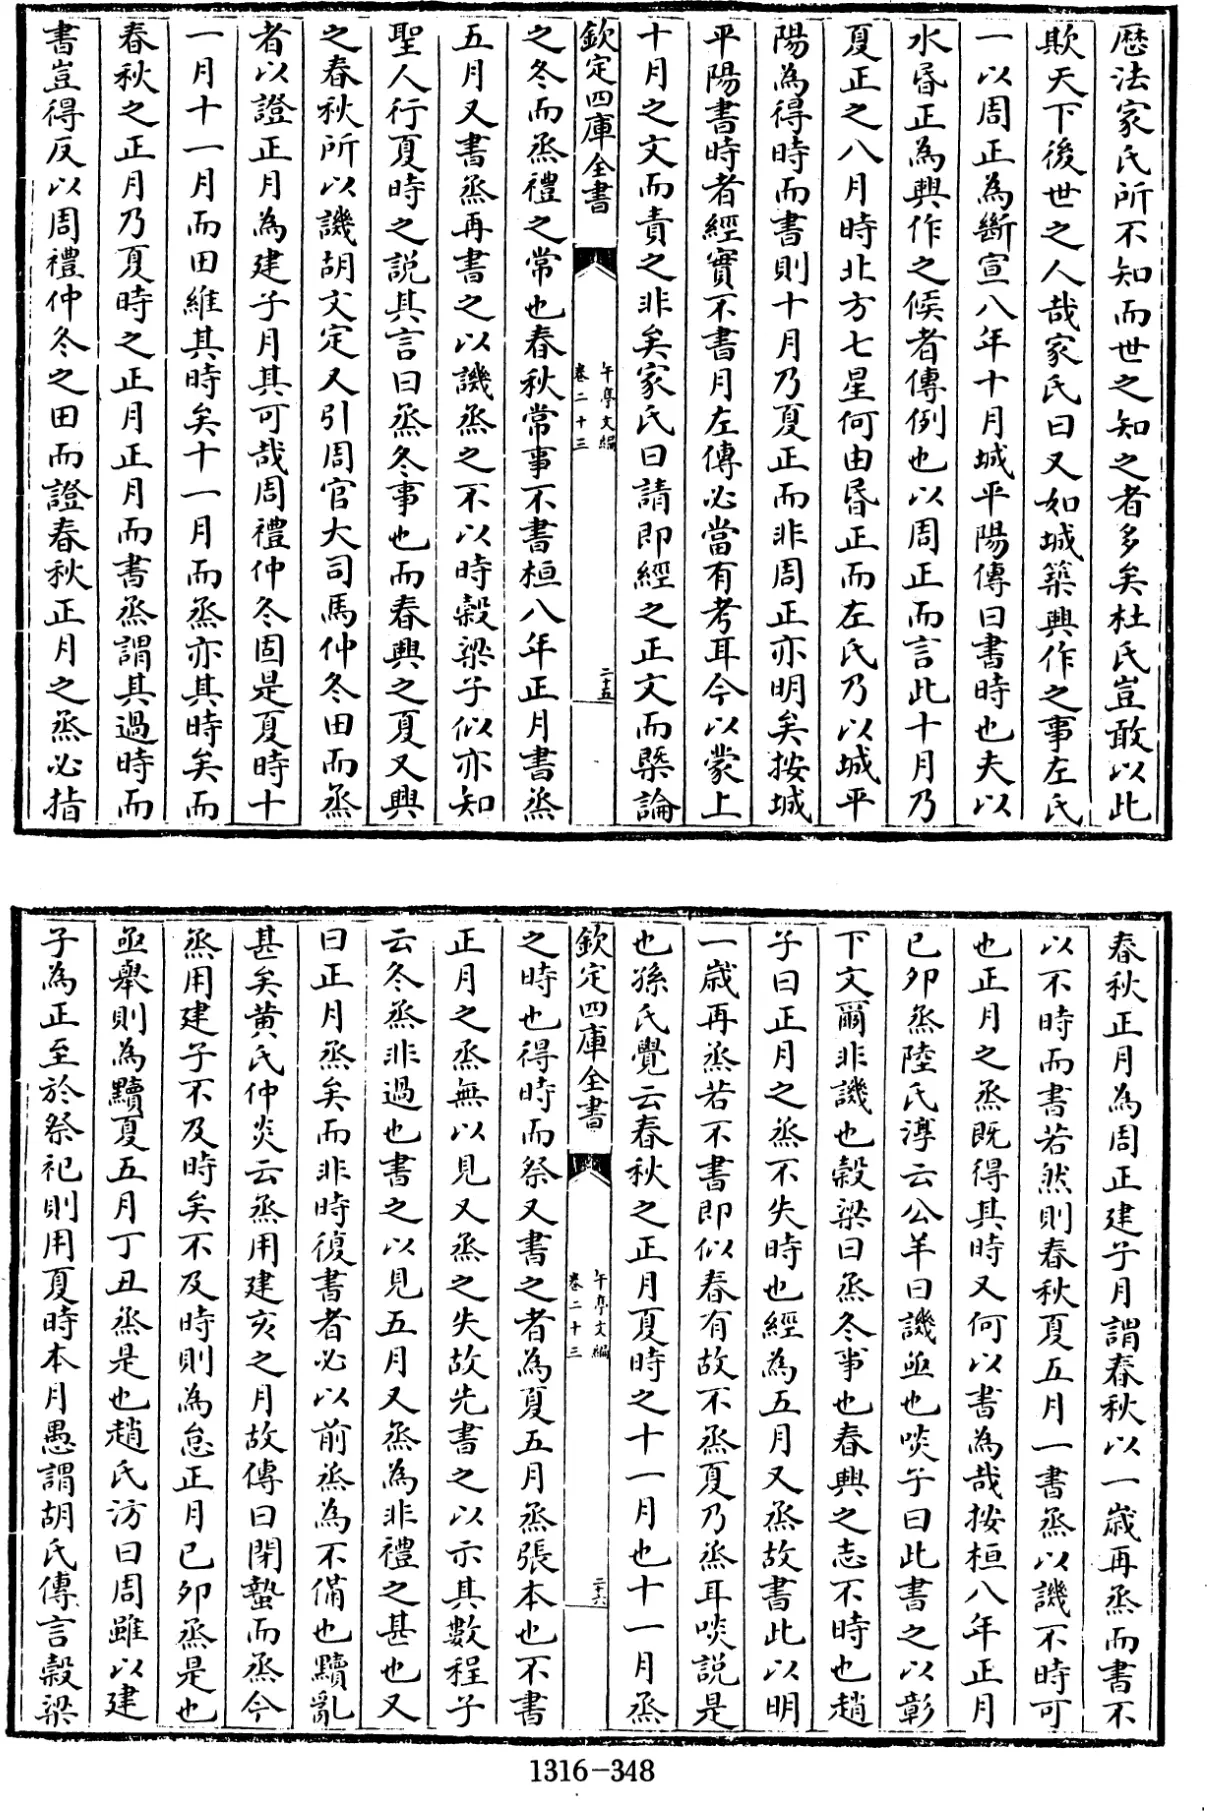 歴法家氏所不知而世之知之者多矣杜氏豈敢以此
欺天下後世之人哉家氏曰又如城築興作之事左氏
一以周正為斷宣八年十月城平陽傳曰書時也夫以
水昏正為興作之候者傳例也以周正而言此十月乃
夏正之八月時北方七星何由昏正而左氏乃以城平
陽為得時而書則十月乃夏正而非周正亦明矣按城
平陽書時者經實不書月左傳必當有考耳今以蒙上
十月之文而責之非矣家氏曰請即經之正文而槩論
欽定四庫全書
午亭文編
卷二十三
二十五
之冬而烝禮之常也春秋常事不書桓八年正月書烝
五月又書烝再書之以譏烝之不以時穀梁子似亦知
聖人行夏時之説其言曰烝冬事也而春興之夏又興
之春秋所以譏胡文定又引周官大司馬仲冬田而烝
者以證正月為建子月其可哉周禮仲冬固是夏時十
一月十一月而田維其時矣十一月而烝亦其時矣而
春秋之正月乃夏時之正月正月而書烝謂其過時而
書豈得反以周禮仲冬之田而證春秋正月之烝必指
春秋正月為周正建子月謂春秋以一歳再烝而書不
以不時而書若然則春秋夏五月一書烝以譏不時可
也正月之烝既得其時又何以書為哉按桓八年正月
已卯烝陸氏淳云公羊曰譏亟也啖子曰此書之以彰
下文爾非譏也穀梁曰烝冬事也春興之志不時也趙
子曰正月之烝不失時也經為五月又烝故書此以明
一歳再烝若不書即似春有故不烝夏乃烝耳啖説是
也孫氏覺云春秋之正月夏時之十一月也十一月烝
欽定四庫全書
午亭文編
卷二十三
二十六
之時也得時而祭又書之者為夏五月烝張本也不書
正月之烝無以見又烝之失故先書之以示其數程子
云冬烝非過也書之以見五月又烝為非禮之甚也又
曰正月烝矣而非時復書者必以前烝為不備也黷亂
甚矣黄氏仲炎云烝用建亥之月故傳曰閉蟄而烝今
烝用建子不及時矣不及時則為怠正月已卯烝是也
亟舉則為黷夏五月丁丑烝是也趙氏汸曰周雖以建
子為正至於祭祀則用夏時本月愚謂胡氏傳言穀梁
1316-348